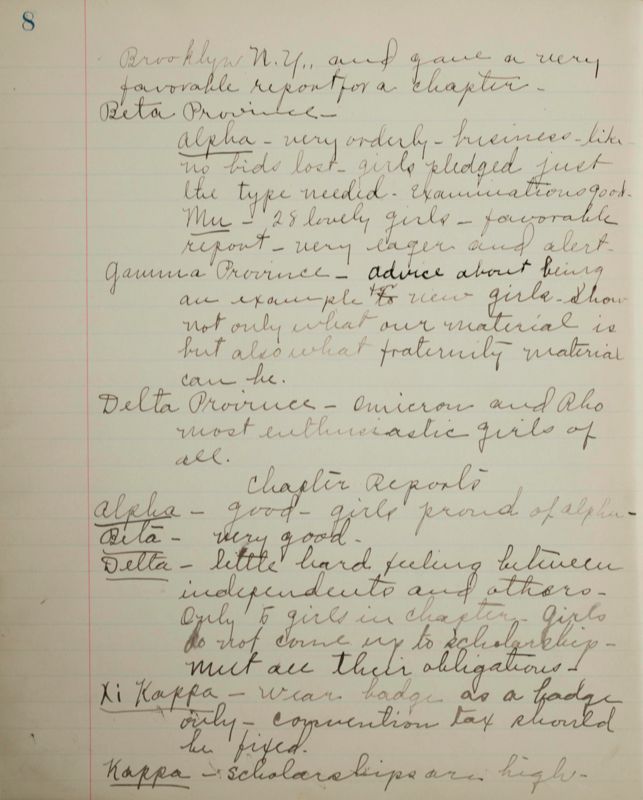 8
Brooklyn N.Y., and gave a very
favorable report for a chapter -
Beta Province -
Alpha - very orderly - business-like -
no bids lost - girls pledged just
the type needed - Examinations good -
Mu - 28 lovely girls - favorable
report - very eager and alert -
Gamma Province - advice about being
an example to new girls - Show
not only what our material is
but also what fraternity material
can be.
Delta Province - Omicron and Rho
most enthusiastic girls of
all.
Chapter Reports
Alpha - good - girls proud of Alpha -
Beta - very good -
Delta - little hard feeling between
independents and others -
Only 5 girls in chapter - Girls
do not come up to scholarship -
Met all their obligations -
Xi Kappa - wear badge as a badge
only - convention tax should
be fixed.
Kappa - scholarships are high -